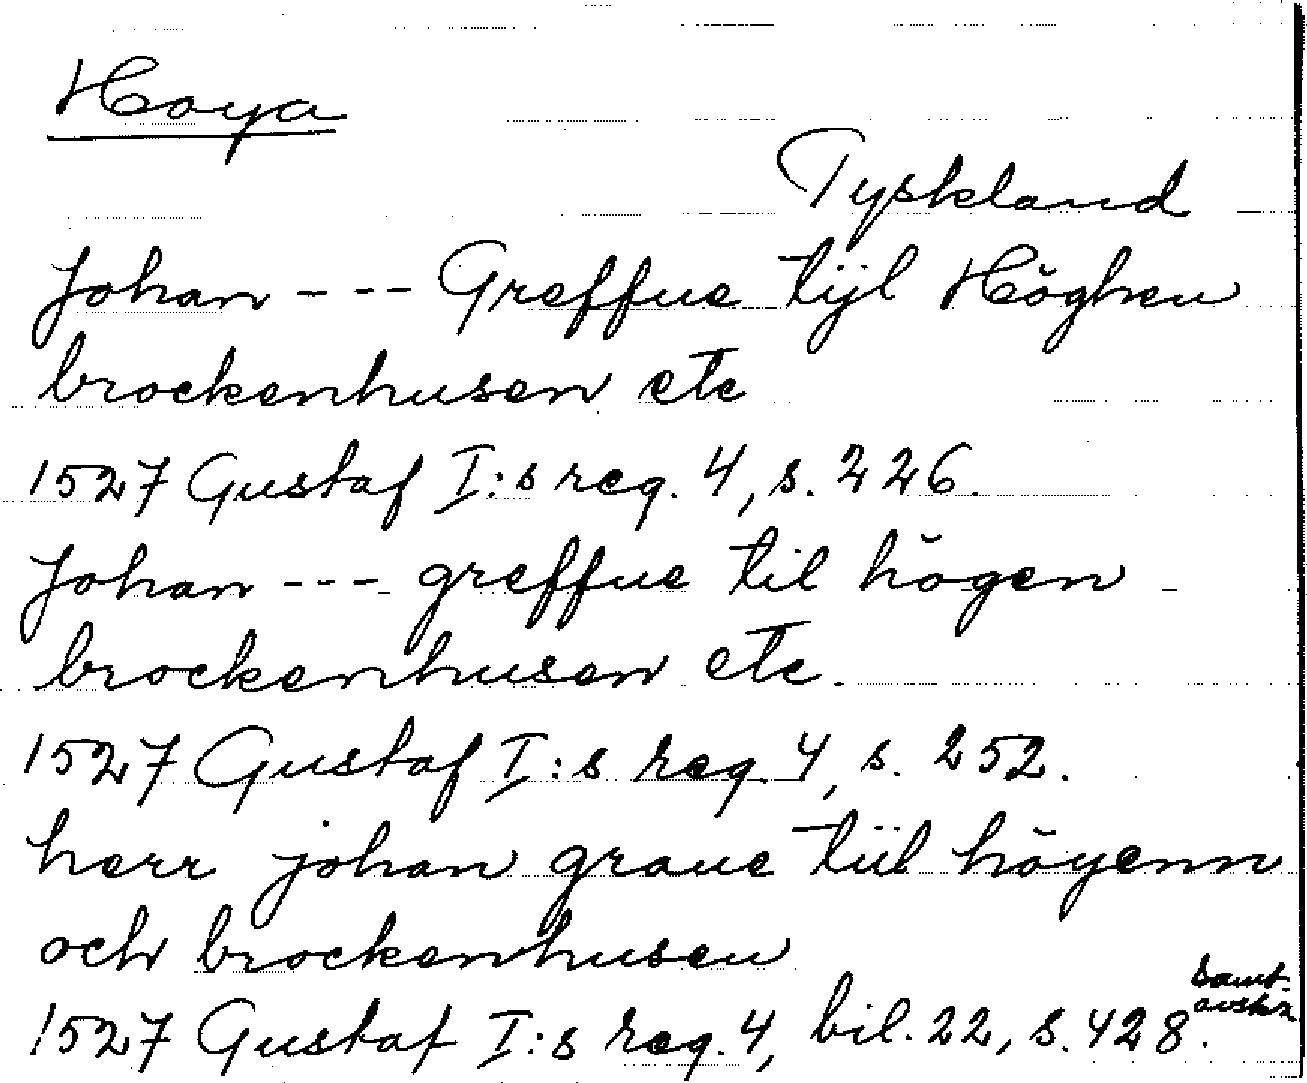 Hoya
Tyskland
Johan --- Greffue tijl Höghen
brockenhusen etc
1527 Gustaf I:s reg. 4, s. 226.
Johan --- greffue til högen
brockenhusen etc.
1527 Gustaf I:s reg. 4, s. 252.
herr johan graue tiil höyenn
och brockenhusen
samt.
avskr.
1527 Gustaf I:s reg. 4, bil. 22, s. 428.